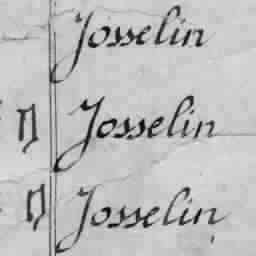 Josselin
D Josselin
D Josselin